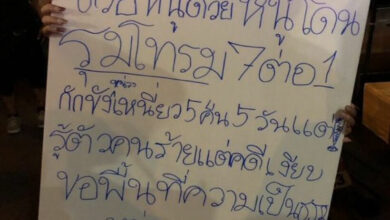 ช่วยหนูด้วย หนูโดน
รุมโทรม 7 ต่อ 1
กักขังหน่วงเหนี่ยว 5 คืน 5 วัน แต่!
รู้ตัวคนร้ายแต่คดีเงียบ
ขอพื้นที่ความเป็นธรรม